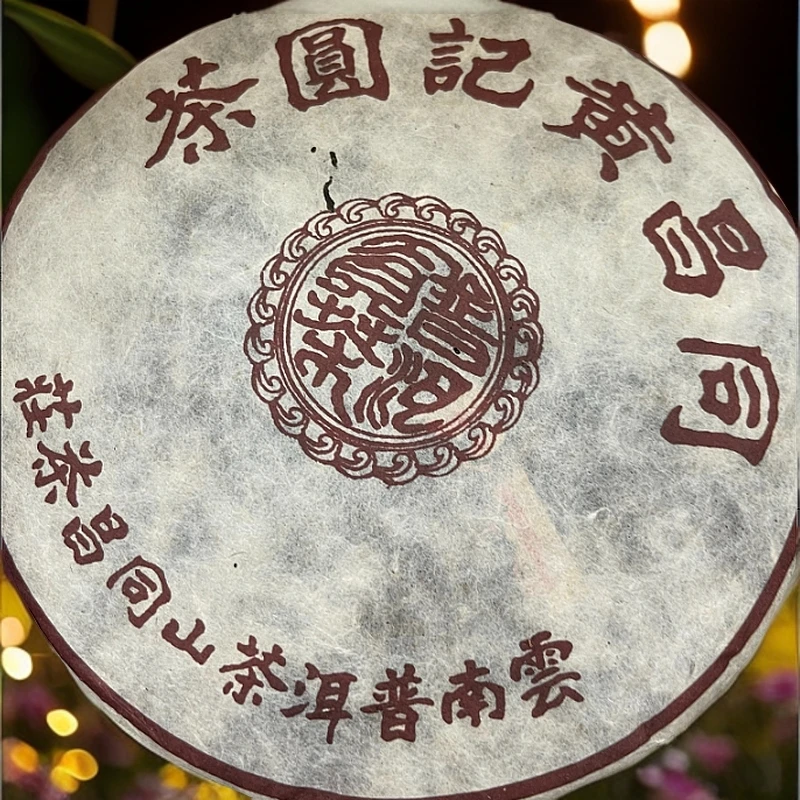 同昌黃記圓茶
雲南普洱茶山同昌茶莊